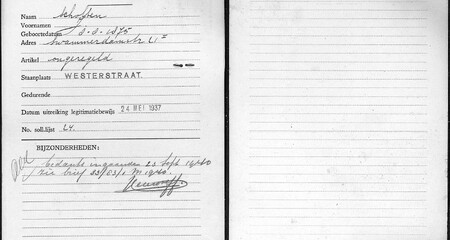 Naam Scholten
Voornamen
Geboortedatum 8-8-1875
Adres Swammerdamstr
Artikel ongeregeld
Staanplaats WESTERSTRAAT.
Gedurende
Datum uitreiking legitimatiebewijs 24 MEI 1937
No. soll.lijst 24.
BIJZONDERHEDEN:
bedankt ingaande 23 Sept. 1940
zie brief 33/63/1 M 1940.